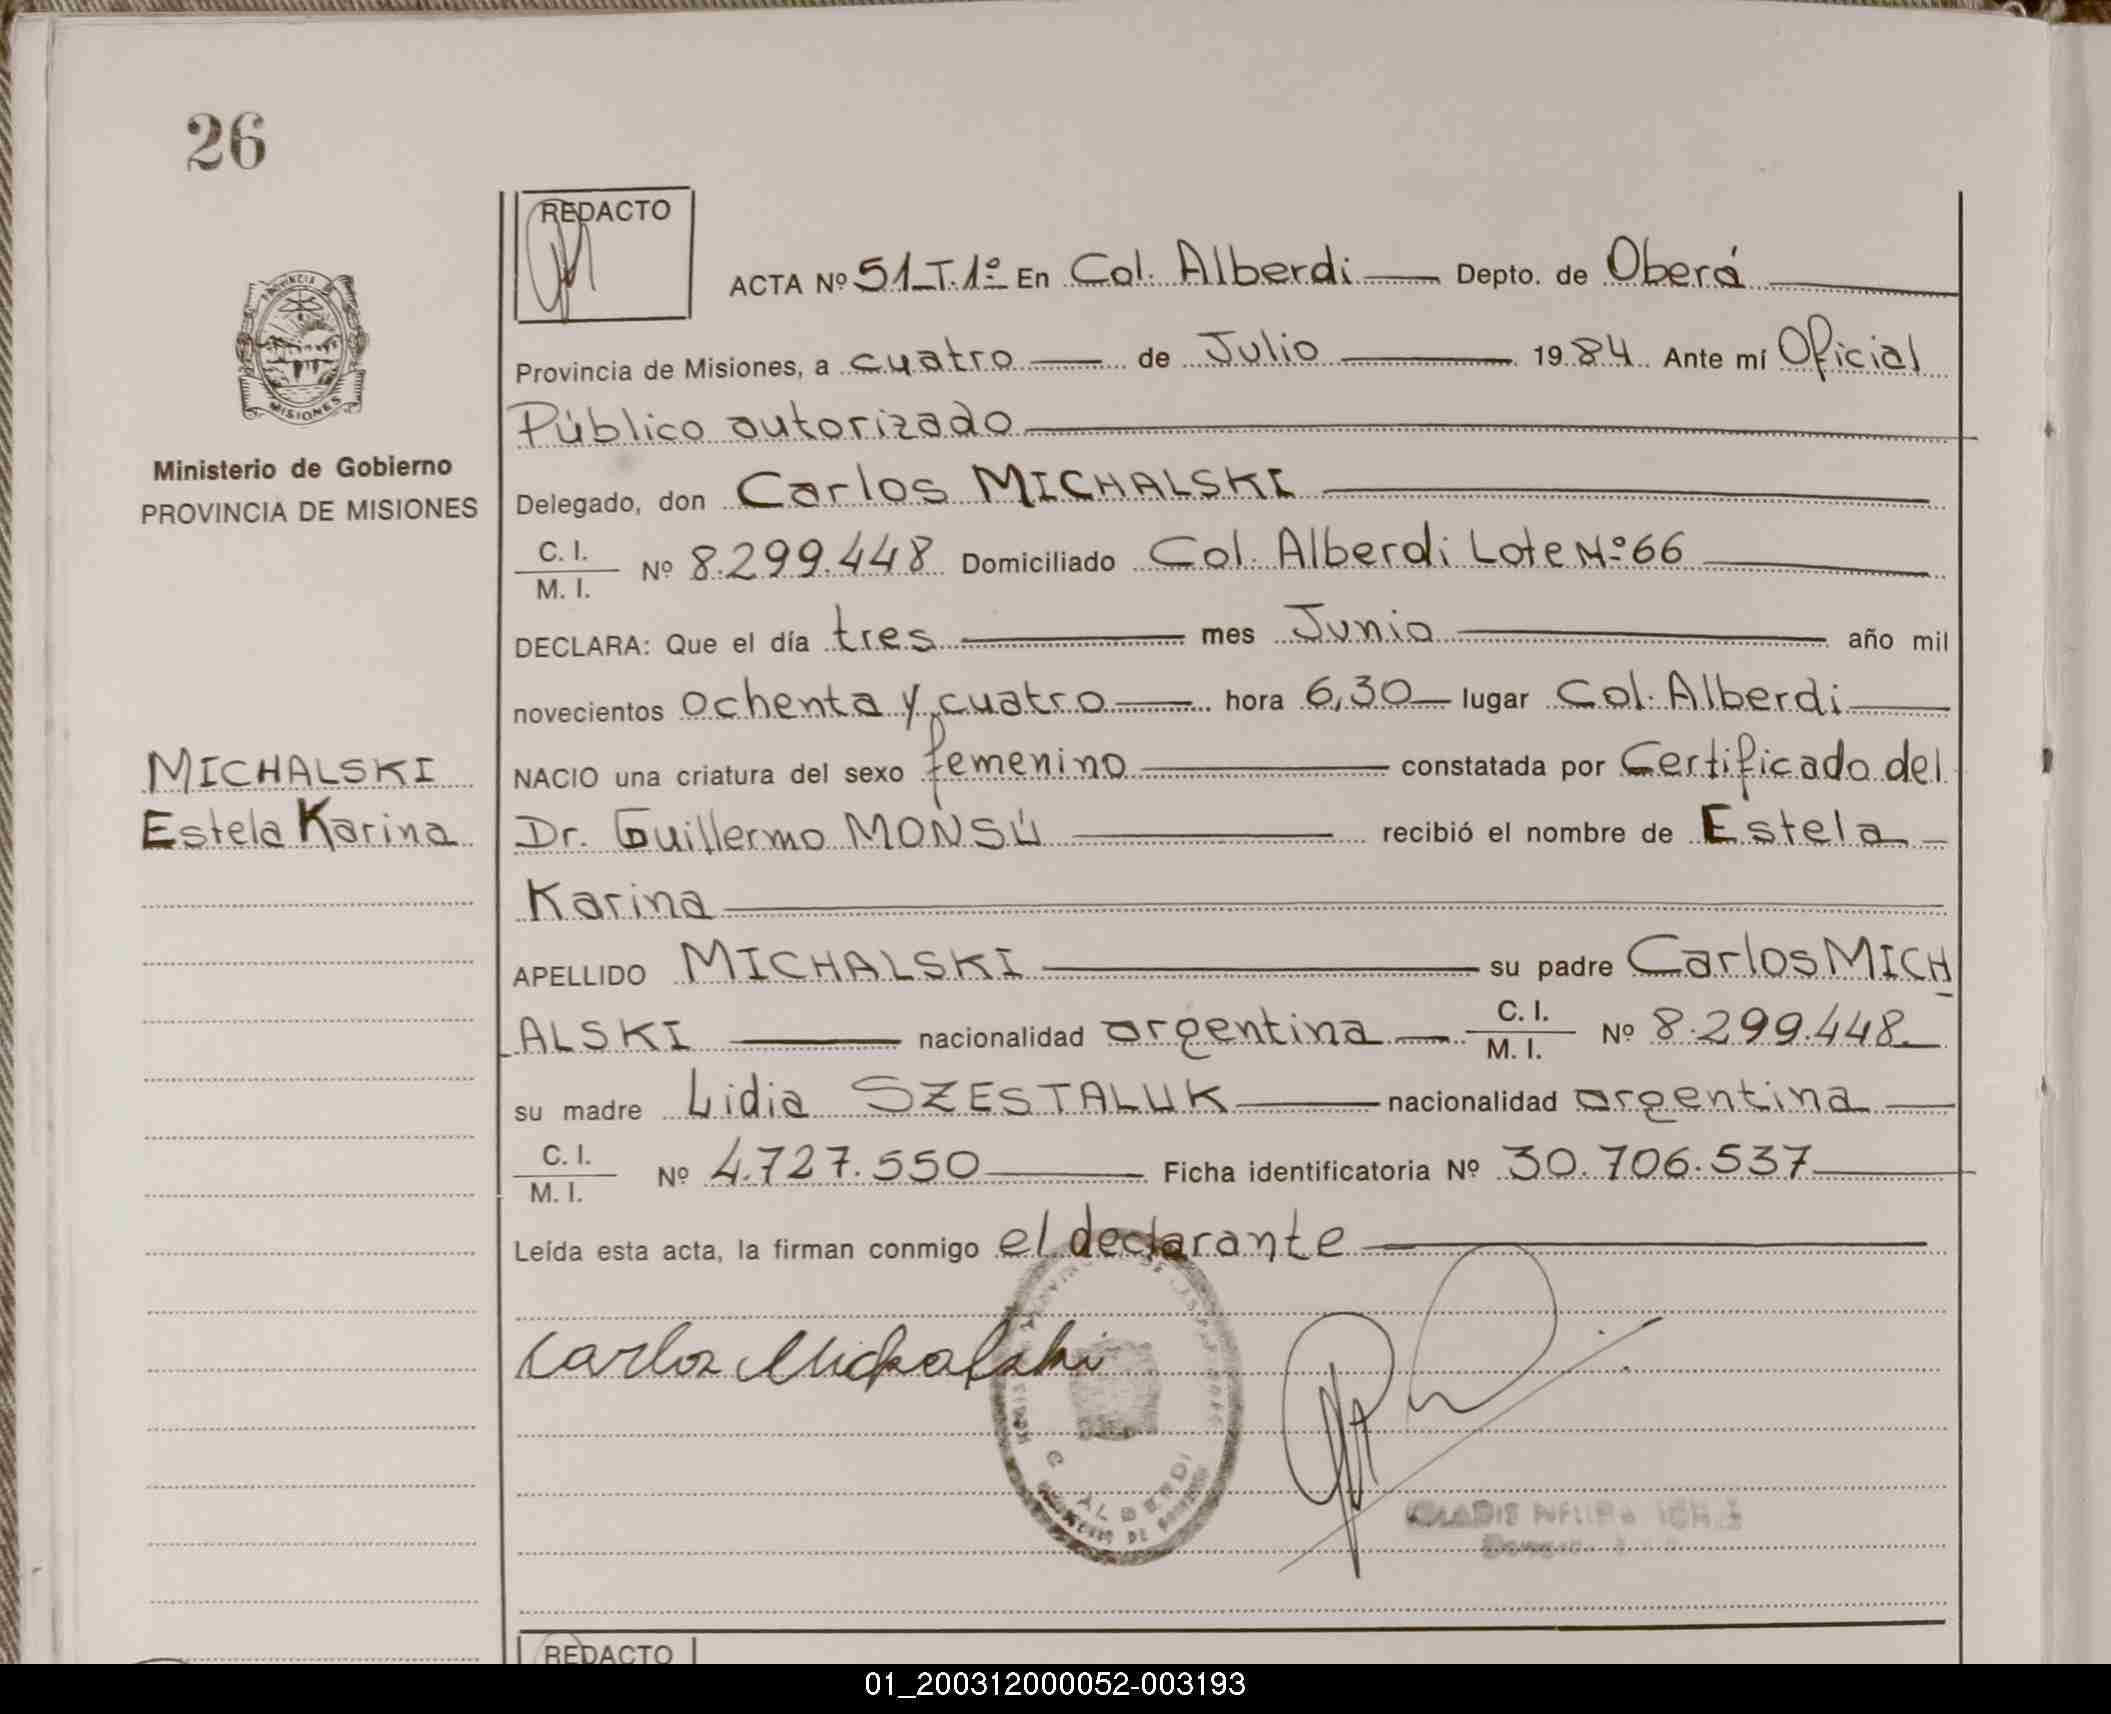 26
REDACTO
ACTA Nº 51_T.1º En Col. Alberdi Depto. de Oberá
PROVINCIA
MISIONES
Provincia de Misiones, a cuatro de Julio 1984 Ante mí Oficial
Público autorizado
Ministerio de Gobierno
PROVINCIA DE MISIONES
Delegado, don Carlos MICHALSKI
C. I.
M. I. Nº 8.299.448 Domiciliado Col. Alberdi Lote Nº 66
DECLARA: Que el día tres mes Junio año mil
novecientos ochenta y cuatro hora 6,30 lugar Col. Alberdi
MICHALSKI
Estela Karina
NACIO una criatura del sexo femenino constatada por Certificado del
Dr. Guillermo MONSÚ recibió el nombre de Estela
Karina
APELLIDO MICHALSKI su padre Carlos MICH
ALSKI nacionalidad argentina C. I.
M. I. Nº 8.299.448
su madre Lidia SZESTALUK nacionalidad argentina
C. I.
M. I. Nº 4.727.550 Ficha identificatoria Nº 30.706.537
Leída esta acta, la firman conmigo el declarante
Carlos Michalski
C. ALBERDI
REDACTO
01_200312000052-003193